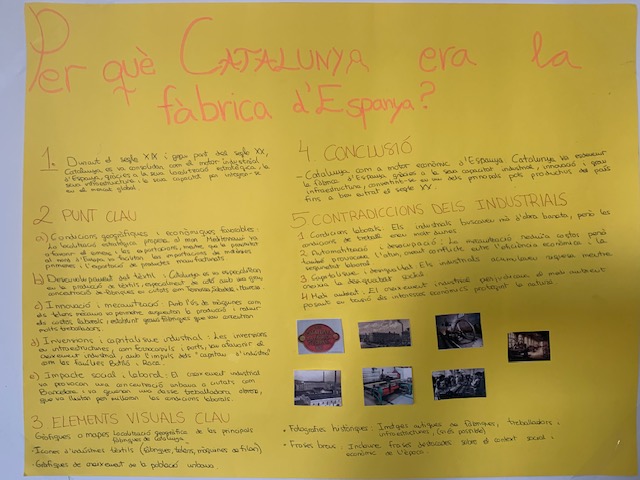 Per què CATALUNYA era la
fàbrica d'Espanya?
1. Durant el segle XIX i gran part del segle XX,
Catalunya es va consolidar com el motor industrial
d'Espanya, gràcies a la seva localització estratègica, la
seva infraestructura i la seva capacitat per integrar-se
en el mercat global.
2 PUNT CLAU
a) Condicions geogràfiques i econòmiques favorables:
La localització estratègica propera al mar Mediterrani va
afavorir el comerç i les exportacions, mentre que la proximitat
al nord d'Europa va facilitar les importacions de matèries
primeres i l'exportació de productes manufacturats.
b) Desenvolupament del tèxtil: Catalunya es va especialitzar
en la producció de tèxtils, especialment de cotó amb una gran
concentració de fàbriques en ciutats com Terrassa, Sabadell i Manresa.
c) Innovació i mecanització: Amb l'ús de màquines com
els telers mecànics va permetre augmentar la producció i reduir
els costos laborals, establint grans fàbriques que van concentrar
molts treballadors.
d) Inversions i capitalisme industrial: Les inversions
en infraestructures, com ferrocarrils i ports, van afavorir el
creixement industrial, amb l'impuls dels "capitans d'indústria"
com les famílies Batlló i
e) Impacte social i laboral: El creixement industrial
va provocar una concentració urbana a ciutats com
Barcelona i va generar una classe treballadora obrera,
que va lluitar per millorar les condicions laborals.
3 ELEMENTS VISUALS CLAU
- Gràfiques o mapes localització geogràfica de les principals
fàbriques de Catalunya.
- Icones d'indústries tèxtils (fàbriques, telers, màquines de filar)
- Gràfiques de creixement de la població urbana.
4. CONCLUSIÓ
- Catalunya com a motor econòmic d'Espanya Catalunya va esdevenir
la fàbrica d'Espanya gràcies a la seva capacitat industrial, innovació i gran
infraestructura, convertint-se en un dels principals pols productius del país
fins a ben entrat el segle XX.
5 CONTRADICCIONS DELS INDUSTRIALS
1. Condicions laborals: Els industrials buscaven mà d'obra barata, però les
condicions de treball eren molt dures.
2. Automatització i desocupació: La mecanització reduïa costos però
també provocava l'atur, creant conflicte entre l'eficiència econòmica i la
seguretat laboral
3 Capitalisme i desigualtat: Els industrials acumulaven riquesa mentre
creixia la desigualtat social.
4 Medi ambient: El creixement industrial perjudicava el medi ambient
posant en tensió els interessos econòmics protegint la natura.
• Fotografies històriques: Imatges antigues de fàbriques, treballadors i
infraestructures, (si és possible)
• Frases breus: Incloure frases destacades sobre el context social i
econòmic de l'època.